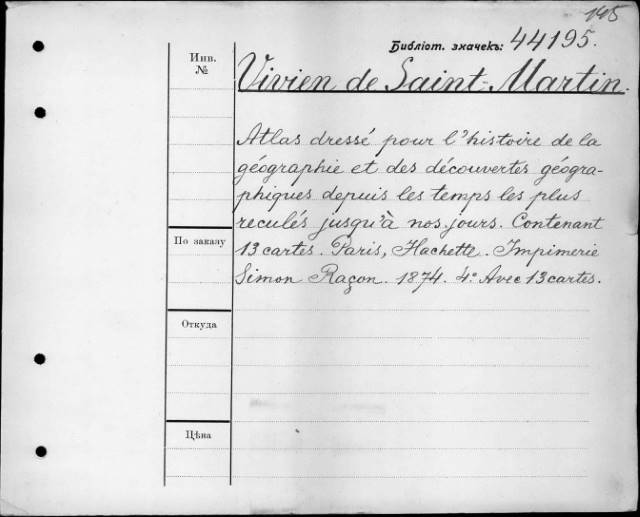 145
Библіот. значекъ: 44195.
Инв.
№
Vivien de Saint-Martin.
Atlas dressé pour l'histoire de la
géographie et des découvertes géogra-
phiques depuis les temps les plus
reculés jusqu'à nos jours. Contenant
По заказу
13 cartes. Paris, Hachette. Imprimerie
Simon Raçon. 1874. 4° Avec 13 cartes.
Откуда
Цѣна